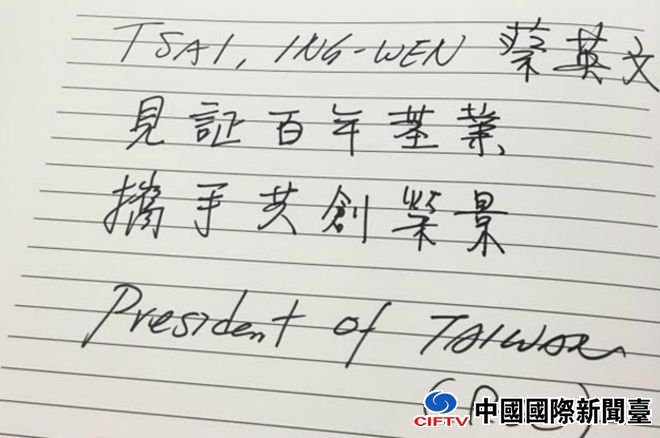 TSAI, ING-WEN 蔡英文
見証百年基業
攜手共創榮景
President of TAIWAN
CIFTV 中國國際新聞臺